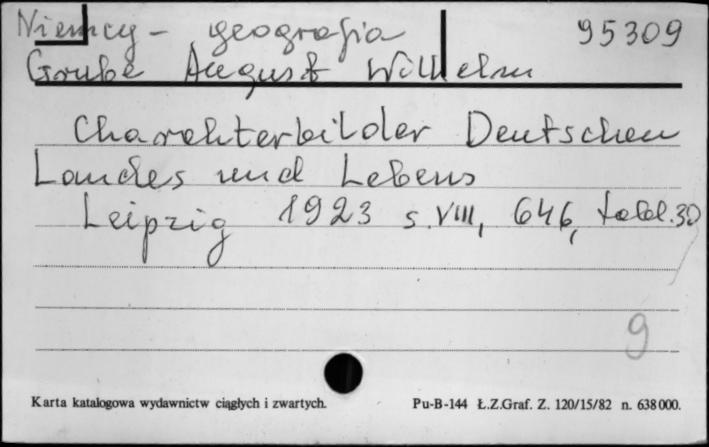 Niemcy - geografia 95309
Grube August Wilhelm
Charakterbilder Deutschen
Landes und Lebens
Leipzig 1923 s. VIII, 646, tabl. 30
9
Karta katalogowa wydawnictw ciągłych i zwartych. Pu-B-144 Ł.Z.Graf. Z. 120/15/82 n. 638 000.